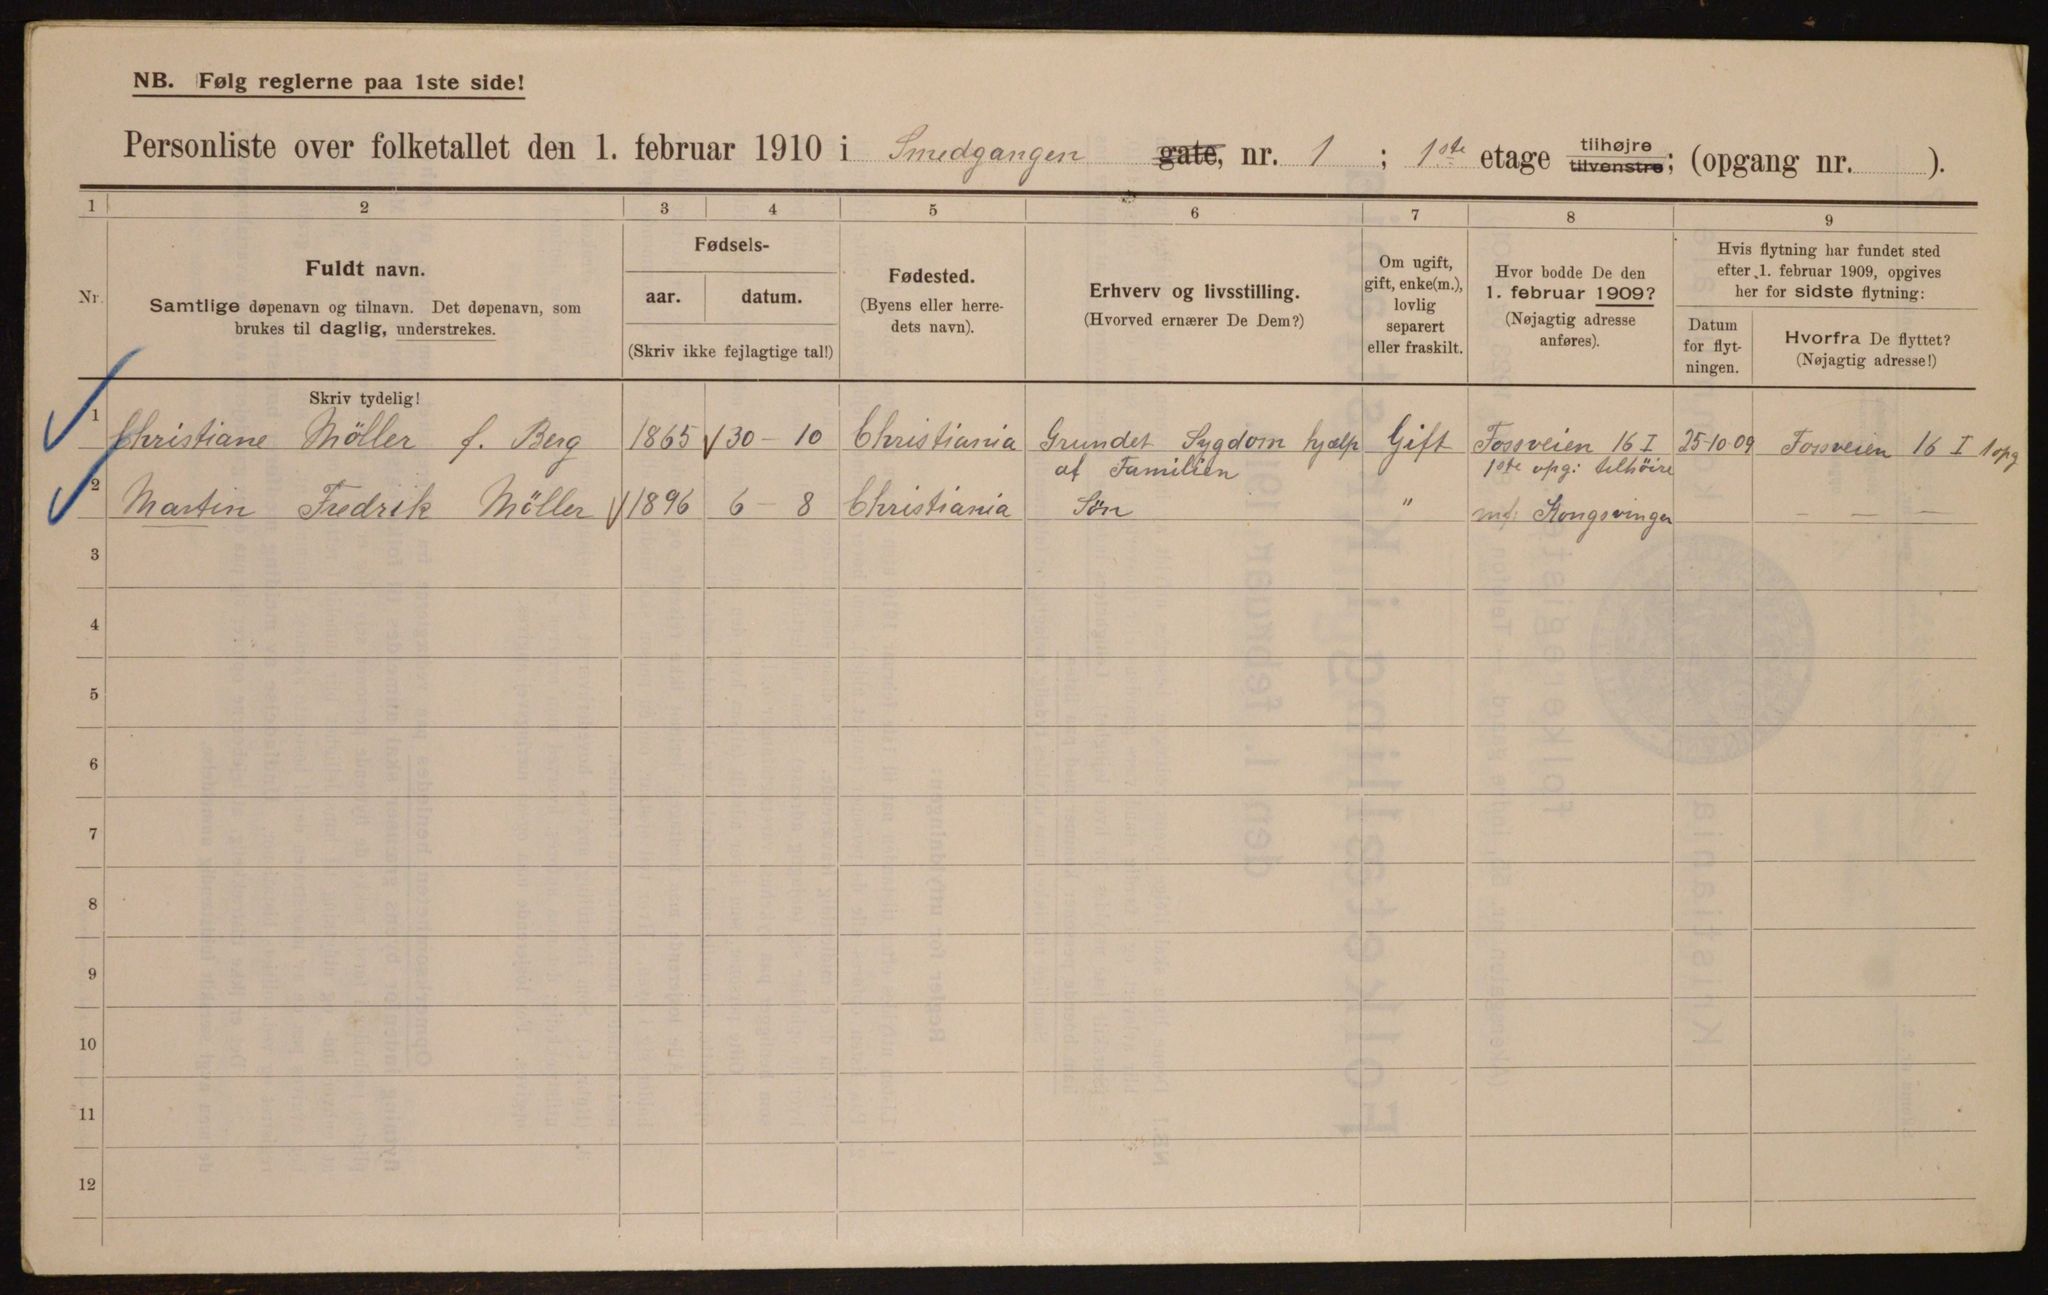 NB. Følg reglerne paa 1ste side!
Personliste over folketallet den 1. februar 1910 i Smedgangen gate, nr. 1 ; 1ste etage tilhøjre tilvenstre; (opgang nr. ).
1 2 3 4 5 6 7 8 9
Nr.
Fuldt navn.
Samtlige døpenavn og tilnavn. Det døpenavn, som
brukes til daglig, understrekes.
Skriv tydelig!
Fødsels-
aar. datum.
(Skriv ikke fejlagtige tal!)
Fødested.
(Byens eller herre-
dets navn).
Erhverv og livsstilling.
(Hvorved ernærer De Dem?)
Om ugift,
gift, enke(m.),
lovlig
separert
eller fraskilt.
Hvor bodde De den
1. februar 1909?
(Nøjagtig adresse
anføres).
Hvis flytning har fundet sted
efter 1. februar 1909, opgives
her for sidste flytning:
Datum
for flyt-
ningen.
Hvorfra De flyttet?
(Nøjagtig adresse!)
1 Christiane Möller f. Berg 1865 30 – 10 Christiania Grundet Sygdom hjælp Gift Fossveien 16 I 25-10-09 Fossveien 16 I 1 opg
af Familien 1ste opg: tilhöire
2 Martin Fredrik Möller 1896 6 – 8 Christiania Sön " Kongsvinger — — —
3
4
5
6
7
8
9
10
11
12